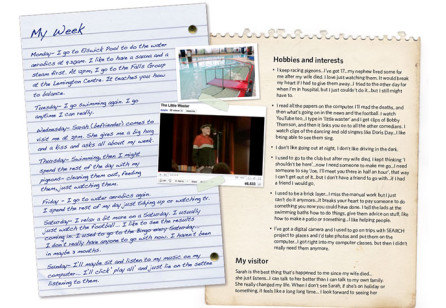 My Week
Monday - I go to Elswick Pool to do the water
aerobics at 9.30am. I like to have a sauna and a
steam first. At 1pm, I go to the Falls Group
at the Lemington Centre. It teaches you how
to balance.
Tuesday - I go swimming again. I go
anytime I can really.
Wednesday - Sarah (befriender) comes to
visit me at 3pm. She gives me a big hug
and a kiss and asks all about my week.
Thursday - Swimming, then I might
spend the rest of the day with my
pigeons - cleaning them out, feeding
them, just watching them.
Friday - I go to water aerobics again.
I spend the rest of my day just tidying up or watching tv.
Saturday - I relax a bit more on a Saturday. I usually
just watch the football... I like to see the results
coming in. I used to go to the Bingo every Saturday...
I don't really have anyone to go with now. I haven't been
in maybe 3 months.
Sunday - I'll maybe sit and listen to my music on my
computer... I'll click 'play all' and just lie on the settee
listening to them.
The Little Waster
Hobbies and interests
• I keep racing pigeons. I've got 17...my nephew fixed some for
me after my wife died. I love just watching them. It would break
my heart if I had to give them away. I tried to the other day for
when I'm in hospital, but I just couldn't do it...but I still might
have to.
• I read all the papers on the computer. I'll read the deaths, and
then what's going on in the news and the football. I watch
YouTube too...I type in 'little waster' and I get clips of Bobby
Thompson, and then it links you on to all the other comedians. I
watch clips of the dancing and old singers like Doris Day. I like
being able to see them sing.
• I don't like going out at night. I don't like driving in the dark.
• I used to go to the club but after my wife died, I kept thinking 'I
shouldn't be here'...now I need someone to make me go. I need
someone to say 'Joe, I'll meet you in half an hour', that way
I can't get out of it. But I don't have a friend to go with...if I had
a friend I would go.
• I used to be a brick layer. I miss the manual work but I just
can't do it anymore...it breaks your heart to pay someone to do
something you now could have done. I tell the lads at the
swimming baths how to do things, give them advice on stuff, like
how to make a patio or something... I like helping people.
• I've got a digital camera and I used to go on trips with SEARCH
project to places and I'd take photos and put them on the
computer...I got right into my computer classes, but then I didn't
really need them anymore.
My visitor
Sarah is the best thing that's happened to me since my wife died...
she just listens...I say talk to her better than I can talk to my own family.
She really changed my life. When I don't see Sarah, if she's on holiday or
something, it feels like a long long time... I look forward to seeing her